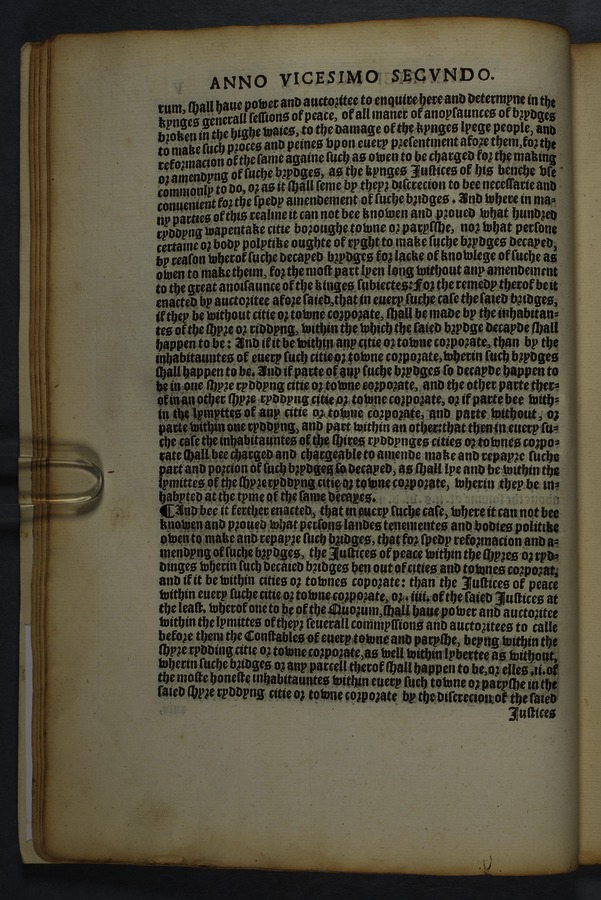 ANNO VICESIMO SECVNDO.
rum, shall haue power and auctoritee to enquire here and determyne in the
kynges generall sessions of peace, of all maner of anoysaunces of brydges
broken in the highe waies, to the damage of the kynges lyege people, and
to make such proces and peines vpon euery presentment afore them, for the
reformacion of the same againe such as owen to be charged for the making
or amendyng of suche brydges, as the kynges Justices of his benche vse
commonly to do, or as it shall seme by theyr discrecion to bee necessarie and
conuenient for the spedy amendement of suche bridges. And where in ma-
ny parties of this realme it can not bee knowen and proued what hundred
ryddyng wapentake citie boroughe towne or parysshe, nor what persone
certaine or body polytike oughte of ryght to make suche brydges decayed,
by reason wherof suche decayed brydges for lacke of knowlege of suche as
owen to make theim, for the most part lyen long without any amendement
to the great anoisaunce of the kinges subiectes: For the remedy therof be it
enacted by auctoritee afore saied, that in euery suche case the saied bridges,
if they be without citie or towne corporate, shall be made by the inhabitan-
tes of the shyre or riddyng, within the which the saied brydge decayde shall
happen to be: And if it be within any citie or towne corporate, than by the
inhabitauntes of euery such citie or towne corporate, wherin such brydges
shall happen to be. And if parte of any suche brydges so decayde happen to
be in one shyre ryddyng citie or towne corporate, and the other parte ther-
of in an other shyre ryddyng citie or towne corporate, or if parte bee with-
in the lymyttes of any citie or towne corporate, and parte without, or
parte within one ryddyng, and part within an other: that then in euery su-
che case the inhabitauntes of the shires ryddynges cities or townes corpo-
rate shall bee charged and chargeable to amende make and repayre suche
part and porcion of such brydges so decayed, as shall lye and be within the
lymittes of the shyre ryddyng citie or towne corporate, wherin they be in-
habyted at the tyme of the same decayes.
¶And bee it ferther enacted, that in euery suche case, where it can not bee
knowen and proued what persons landes tenementes and bodies politike
owen to make and repayre such bridges, that for spedy reformacion and a-
mendyng of suche brydges, the Justices of peace within the shyres or ryd-
dinges wherin such decaied bridges ben out of cities and townes corporat,
and if it be within cities or townes coporate: than the Justices of peace
within euery suche citie or towne corporate, or .iiii. of the saied Justices at
the least, wherof one to be of the Quorum, shall haue power and auctoritee
within the lymittes of theyr seuerall commyssions and auctoritees to calle
before them the Constables of euery towne and paryshe, beyng within the
shyre rydding citie or towne corporate, as well within lybertee as without,
wherin suche bridges or any parcell therof shall happen to be, or elles .ii. of
the moste honeste inhabitauntes within euery such towne or paryshe in the
saied shyre ryddyng citie or towne corporate by the discrecion of the saied
Justices